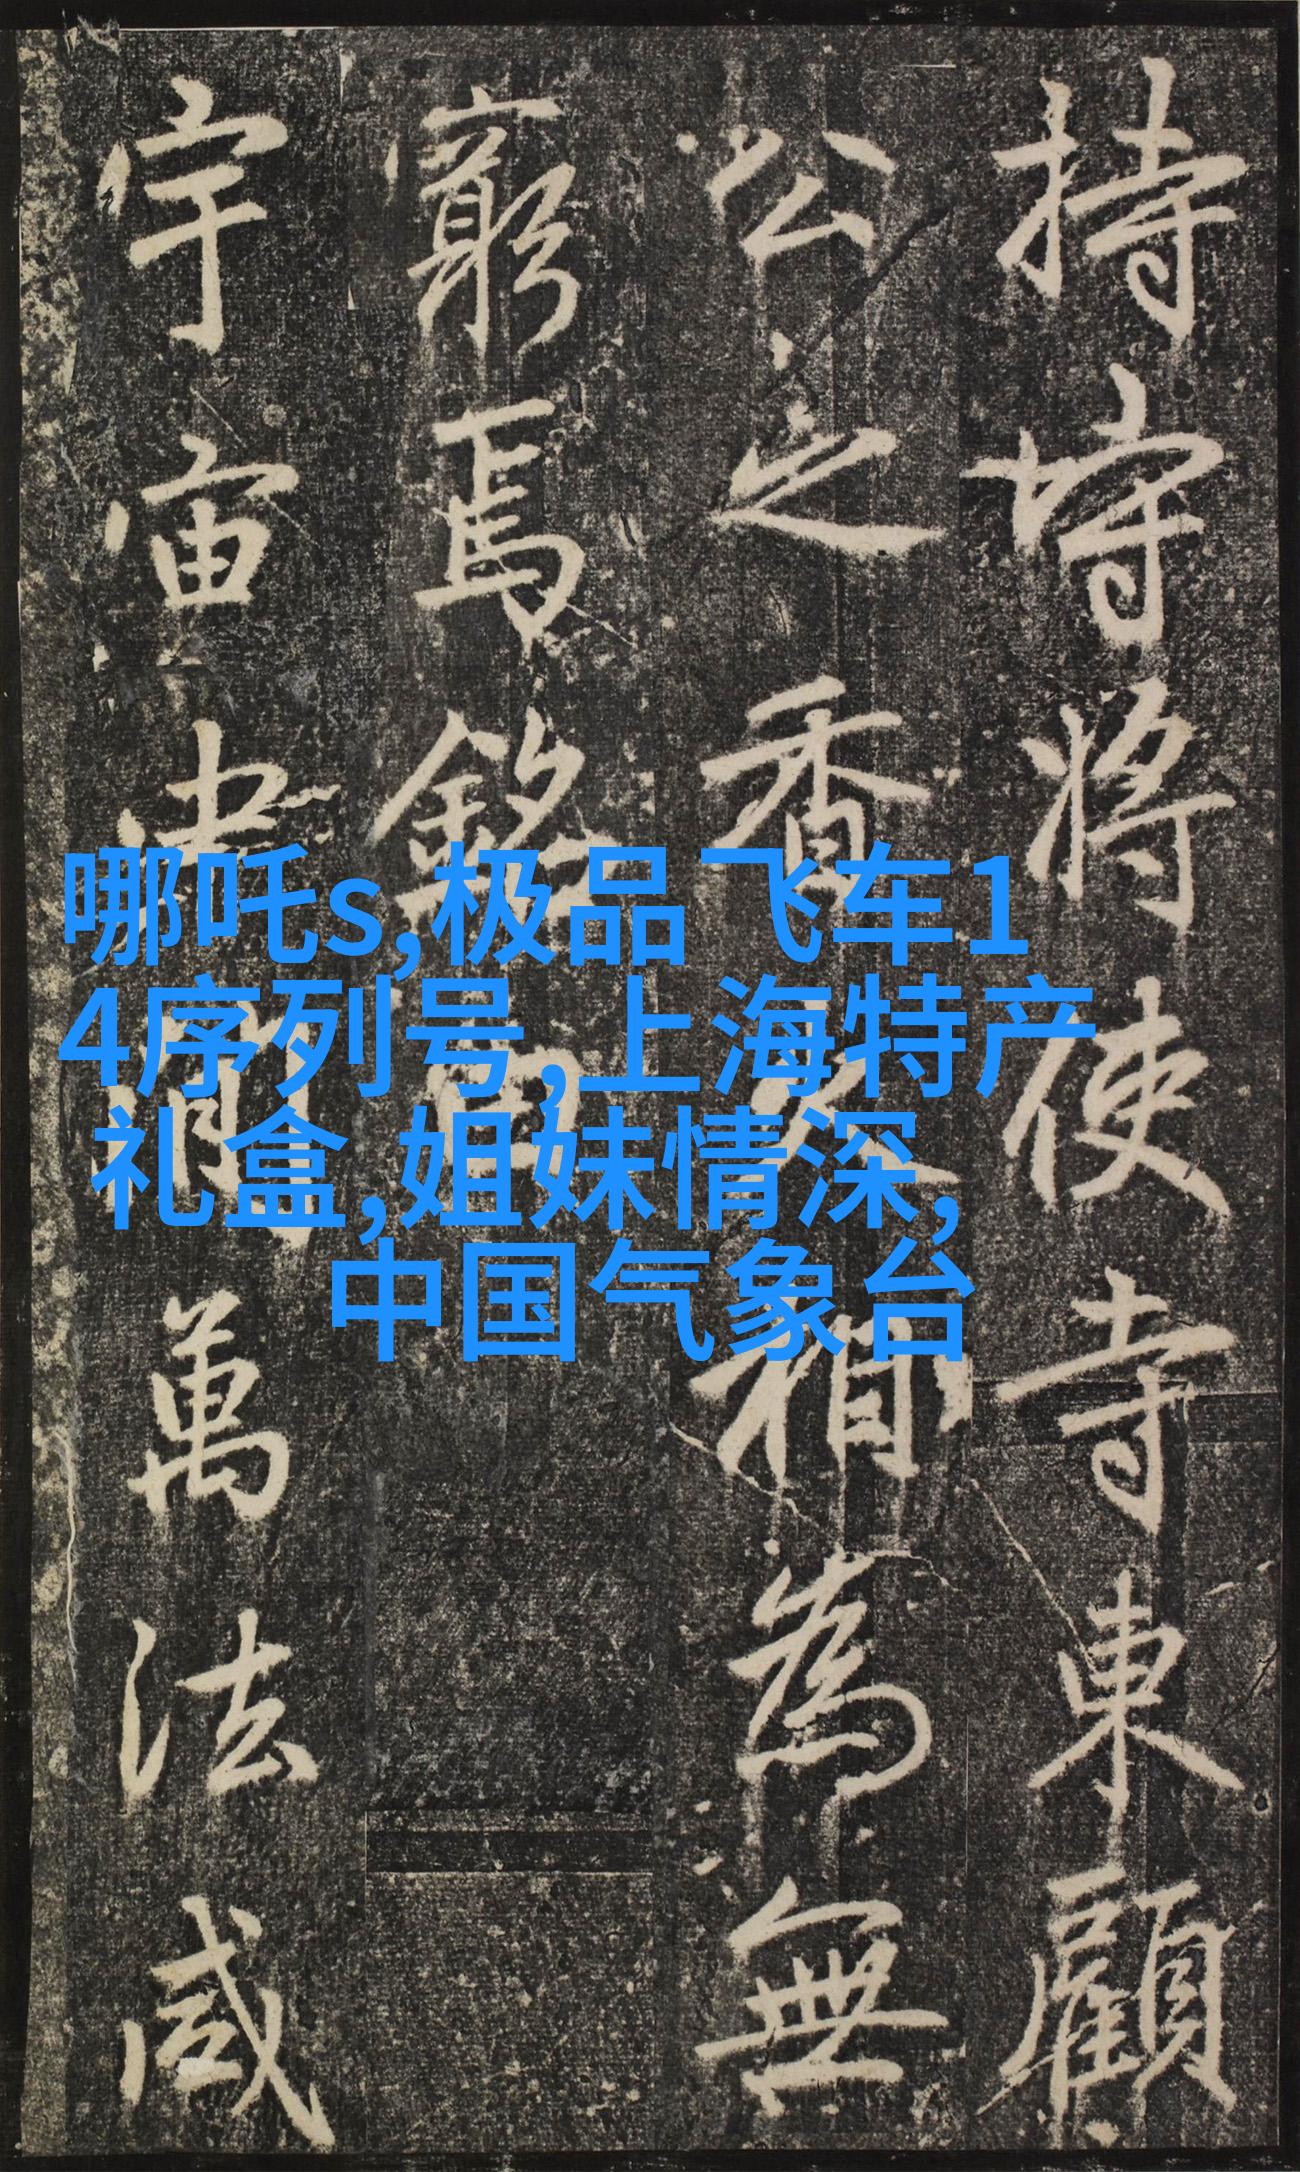 持
将使寺東顧
公之香
相為無
窮焉銘曰
宇宙
間萬法咸
哪吒s,极品飞车1
4序列号,上海特产
礼盒,姐妹情深,
中国气象台